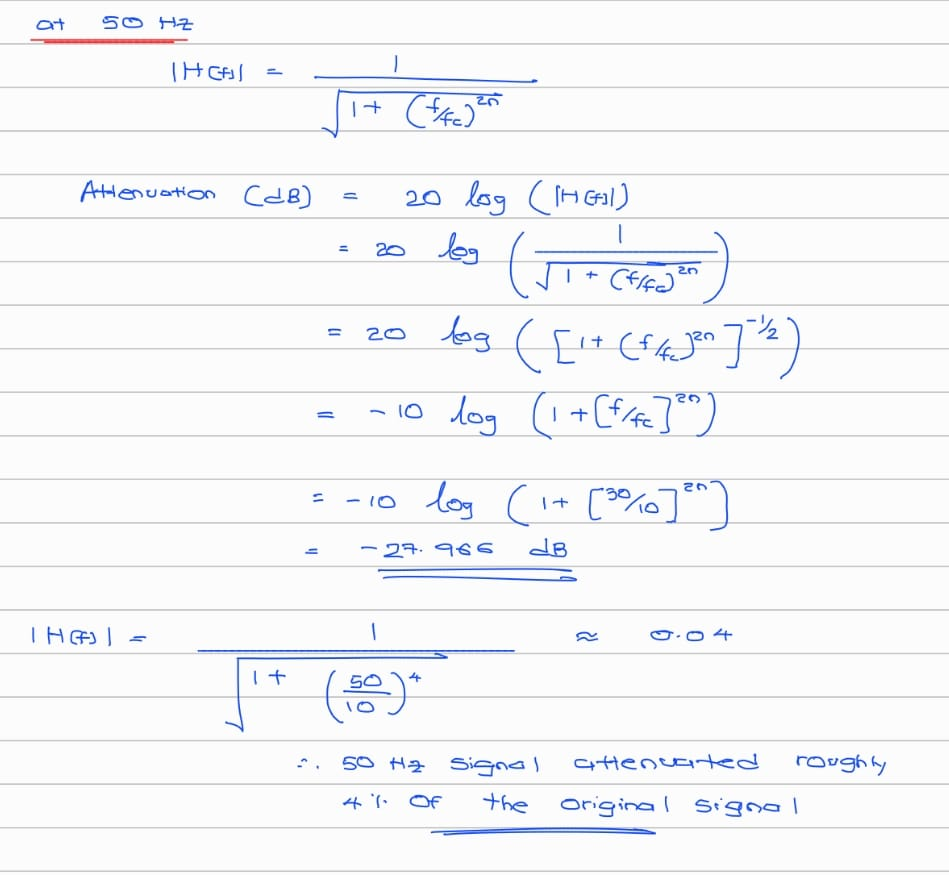 at 50 Hz
|H(f)| = 1 / √(1 + (f/fc)^2n)
Attenuation (dB) = 20 log (|H(f)|)
= 20 log (1 / √(1 + (f/fc)^2n))
= 20 log ([1 + (f/fc)^2n]^-1/2)
= -10 log (1 + [f/fc]^2n)
= -10 log (1 + [30/10]^2n)
= -27.966 dB
|H(f)| = 1 / √(1 + (50/10)^4) ≈ 0.04
∴ 50 Hz signal attenuated roughly
4% of the original signal